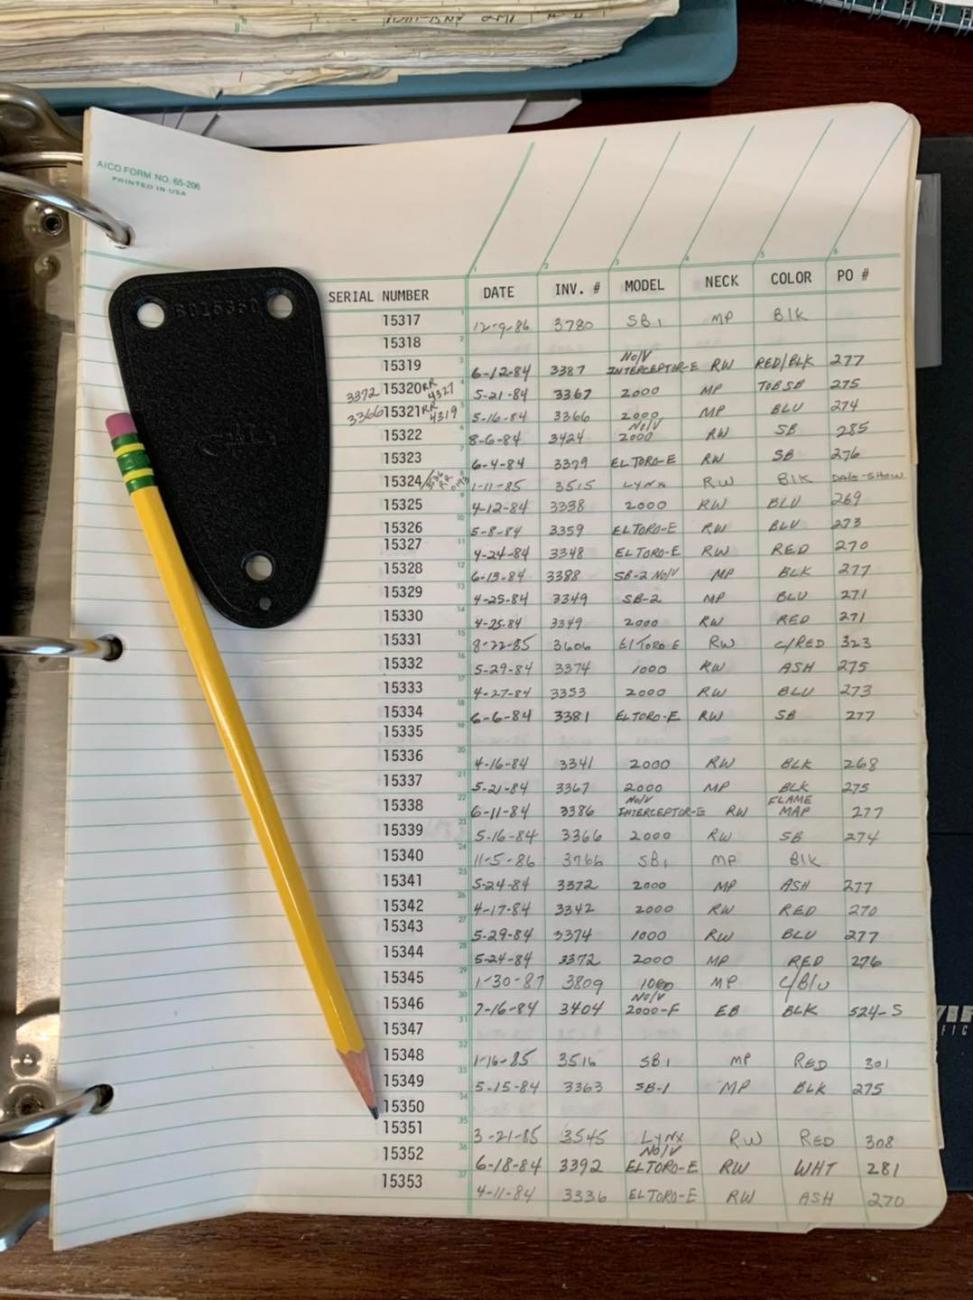 AICO FORM NO. 65-206
PRINTED IN USA
SERIAL NUMBER DATE INV. # MODEL NECK COLOR PO #
15317 12-9-86 3780 SB1 MP Blk
15318
15319 6-12-84 3387 No/V INTERCEPTOR-E RW RED/BLK 277
3372 15320 RR 4327 5-21-84 3367 2000 MP TOBSB 275
3366 15321 RR 4319 5-16-84 3366 2000 MP BLU 274
15322 8-6-84 3424 No/V 2000 RW SB 285
15323 6-4-84 3379 EL TORO-E RW SB 276
15324 1-11-85 3515 LYNX RW Blk SHOW
15325 4-12-84 3338 2000 RW BLU 269
15326 5-8-84 3359 EL TORO-E RW BLU 273
15327 4-24-84 3348 EL TORO-E RW RED 270
15328 6-13-84 3388 SB-2 No/V MP BLK 277
15329 4-25-84 3349 SB-2 MP BLU 271
15330 4-25-84 3349 2000 RW RED 271
15331 8-22-85 3606 El TORO E RW C/RED 323
15332 5-29-84 3374 1000 RW ASH 275
15333 4-27-84 3353 2000 RW BLU 273
15334 6-6-84 3381 EL TORO-E RW SB 277
15335
15336 4-16-84 3341 2000 RW BLK 268
15337 5-21-84 3367 2000 MP BLK 275
15338 6-11-84 3386 No/V INTERCEPTOR-E RW FLAME MAP 277
15339 5-16-84 3366 2000 RW SB 274
15340 11-5-86 3766 SB1 MP Blk
15341 5-24-84 3372 2000 MP ASH 277
15342 4-17-84 3342 2000 RW RED 270
15343 5-29-84 3374 1000 RW BLU 277
15344 5-24-84 3372 2000 MP RED 276
15345 1-30-87 3809 1000 MP C/Blu
15346 7-16-84 3404 No/V 2000-F EB BLK 524-S
15347
15348 1-16-85 3516 SB1 MP RED 301
15349 5-15-84 3363 SB-1 MP BLK 275
15350
15351 3-21-85 3545 LYNX RW RED 308
15352 6-18-84 3392 No/V EL TORO-E RW WHT 281
15353 4-11-84 3336 EL TORO-E RW ASH 270